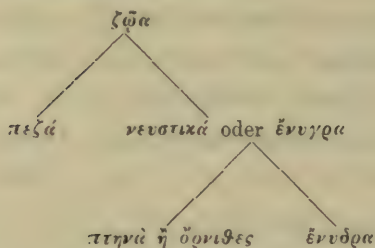 ζῷα
πεζά νευστικά oder ἔνυγρα
πτηνὰ ἢ ὄρνιθες ἔνυδρα